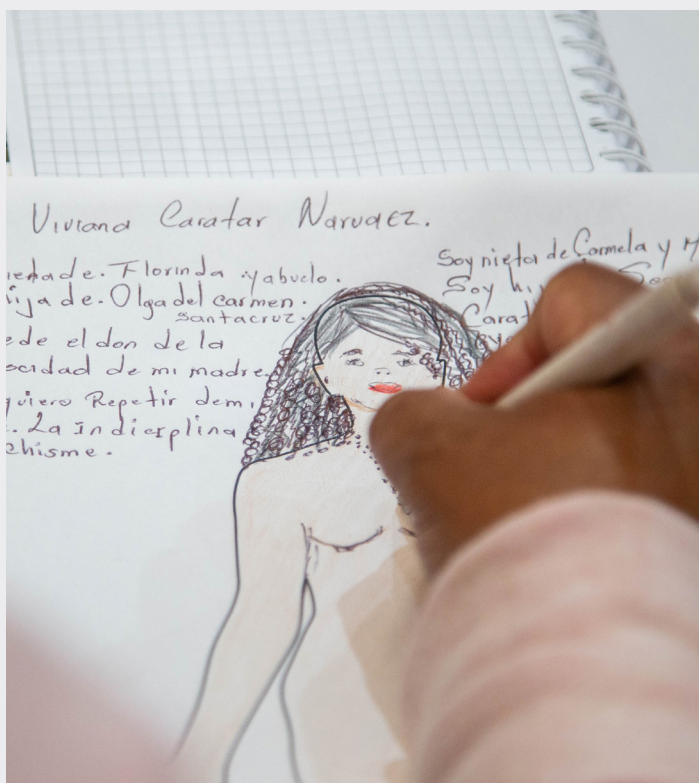 Viviana Caratar Narvaez.
Florinda y abuelo.
de. Olga del carmen.
Santacruz.
el don de la
de mi madre
Repetir de mi
. La indisplina
chisme.
Soy nieta de Carmela y M
Soy hi
Carat